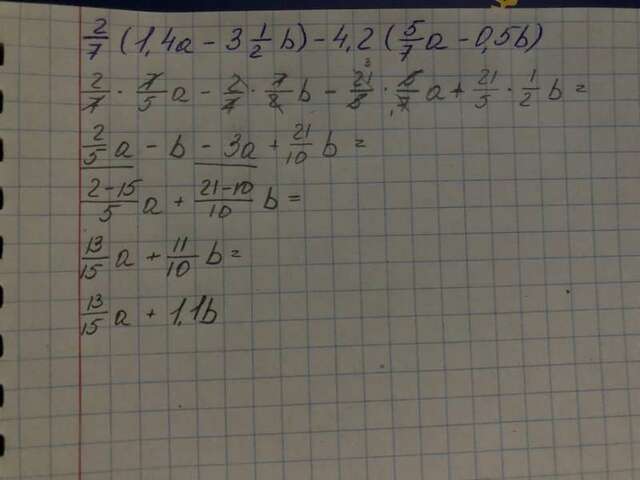 2/7 (1,4a - 3 1/2 b) - 4,2 (5/7 a - 0,5b)
2/7 · 7/5 a - 2/7 · 7/2 b - 21/5 · 5/7 a + 21/5 · 1/2 b =
2/5 a - b - 3a + 21/10 b =
2-15/5 a + 21-10/10 b =
13/15 a + 11/10 b =
13/15 a + 1,1b